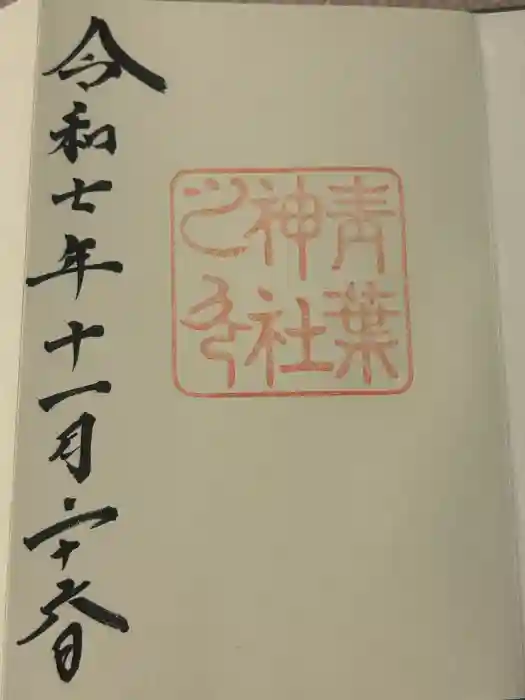 青葉
神社
之印
令和七年十一月二十六日